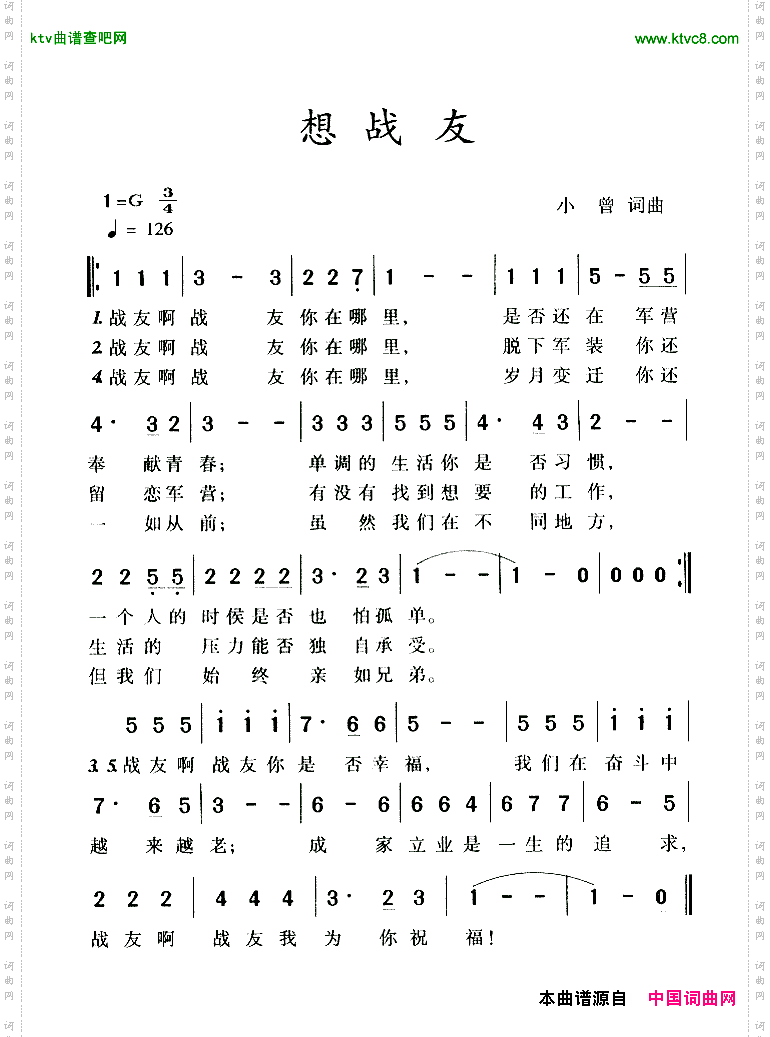 ktv曲谱查吧网 www.ktvc8.com
想战友
1=G 3/4 小 曾 词曲
♩= 126
1 1 1 | 3 - 3 | 2 2 7̣ | 1 - - | 1 1 1 | 5 - 5 5 |
1.战友啊 战 友 你在哪 里， 是否还 在 军营
2.战友啊 战 友 你在哪 里， 脱下军 装 你还
4.战友啊 战 友 你在哪 里， 岁月变 迁 你还
4· 3 2 | 3 - - | 3 3 3 | 5 5 5 | 4· 4 3 | 2 - - |
奉 献青 春； 单调的 生活你 是 否习 惯，
留 恋军 营； 有没有 找到想 要 的工 作，
一 如从 前； 虽 然 我们在 不 同地 方，
2 2 5̣ 5̣ | 2 2 2 2 | 3· 2 3 | 1 - - | 1 - 0 | 0 0 0 :‖
一个人的 时侯是否 也 怕孤 单。
生活的 压力能否 独 自承 受。
但我们 始 终 亲 如兄 弟。
5 5 5 | i i i | 7· 6 6 | 5 - - | 5 5 5 | i i i |
3.5.战友啊 战友你 是 否幸 福， 我们在 奋斗中
7· 6 5 | 3 - - | 6 - 6 | 6 6 6 4 | 6 7 7 | 6 - 5 |
越 来越 老； 成 家 立业是 一生的 追 求，
2 2 2 | 4 4 4 | 3· 2 | 1 - - | 1 - 0 ‖
战友啊 战友我 为 你祝 福！
本曲谱源自 中国词曲网